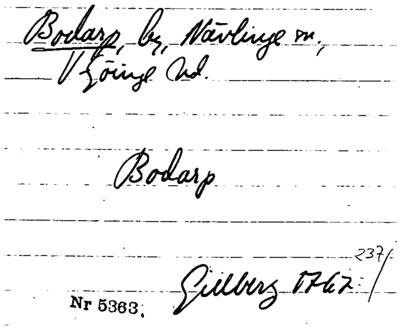 Bodarp, by, Nävlinge sn.,
V Göinge hd.
Bodarp
237/
Gillberg 1767
Nr 5363.